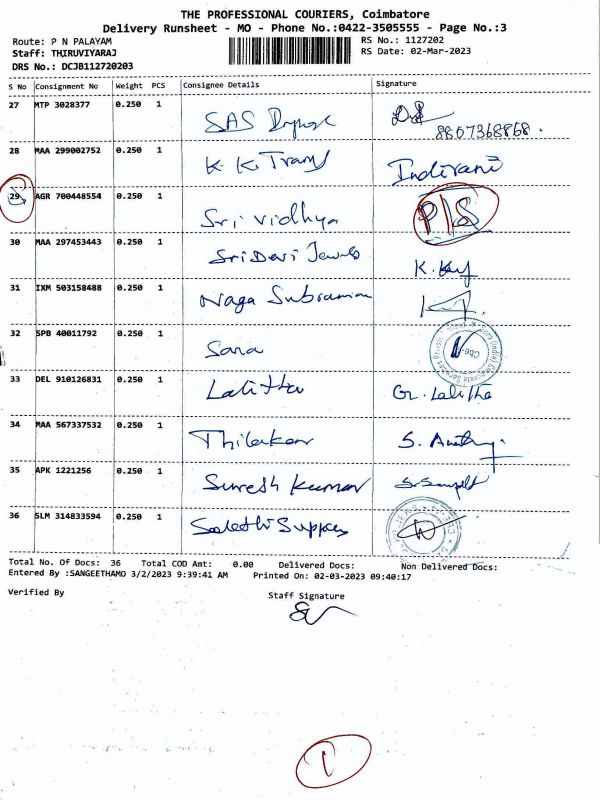 THE PROFESSIONAL COURIERS, Coimbatore
Delivery Runsheet - MO - Phone No.:0422-3505555 - Page No.:3
Route: P N PALAYAM RS No.: 1127202
Staff: THIRUVIYARAJ RS Date: 02-Mar-2023
DRS No.: DCJB112720203
S No Consignment No Weight PCS Consignee Details Signature
27 MTP 3028377 0.250 1 SAS
8807368868.
28 MAA 299002752 0.250 1 K. K. Trans Indirani
29 AGR 700448554 0.250 1 Sri Vidhya P/S
30 MAA 297453443 0.250 1 Sri Devi Jewels
31 IXM 503158488 0.250 1 Naga Subraman
32 SPB 40011792 0.250 1 Sara
33 DEL 910126831 0.250 1 Lalitha G. Lalitha
34 MAA 567337532 0.250 1 Thilakar
35 APK 1221256 0.250 1 Suresh Kumar
36 SLM 314833594 0.250 1
Total No. Of Docs: 36 Total COD Amt: 0.00 Delivered Docs: Non Delivered Docs:
Entered By :SANGEETHAMO 3/2/2023 9:39:41 AM Printed On: 02-03-2023 09:40:17
Verified By Staff Signature
1